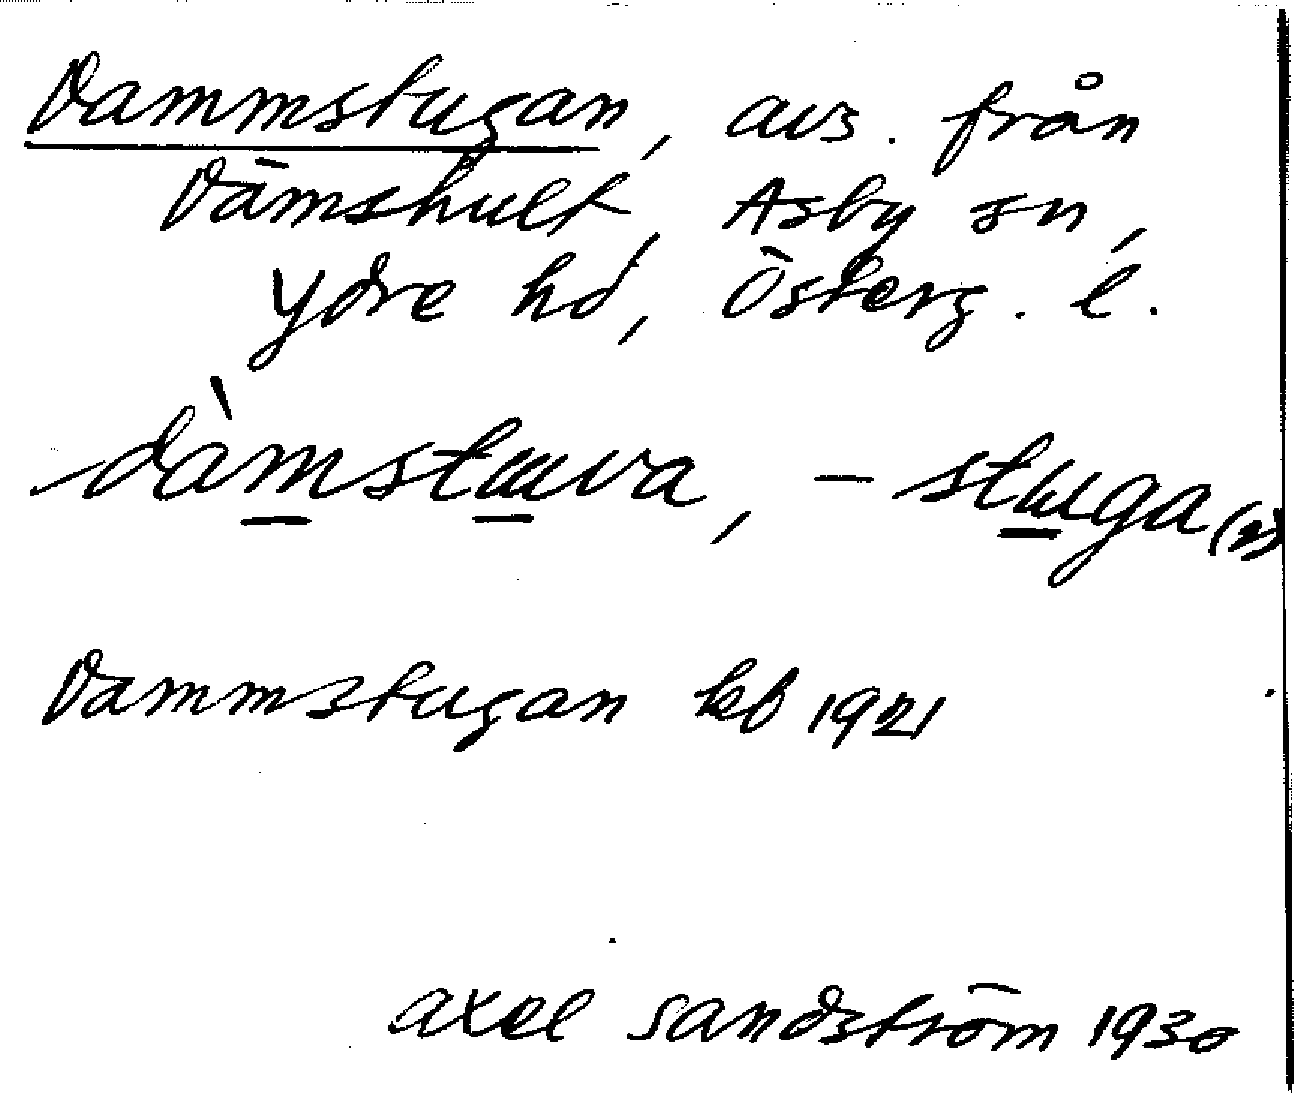 Dammstugan, avs. från
Dämshult, Asby sn,
Ydre hd, Österg. l.
dàmstɯva, - stɯga (2)
Dammstugan kb 1921
Axel Sandström 1930